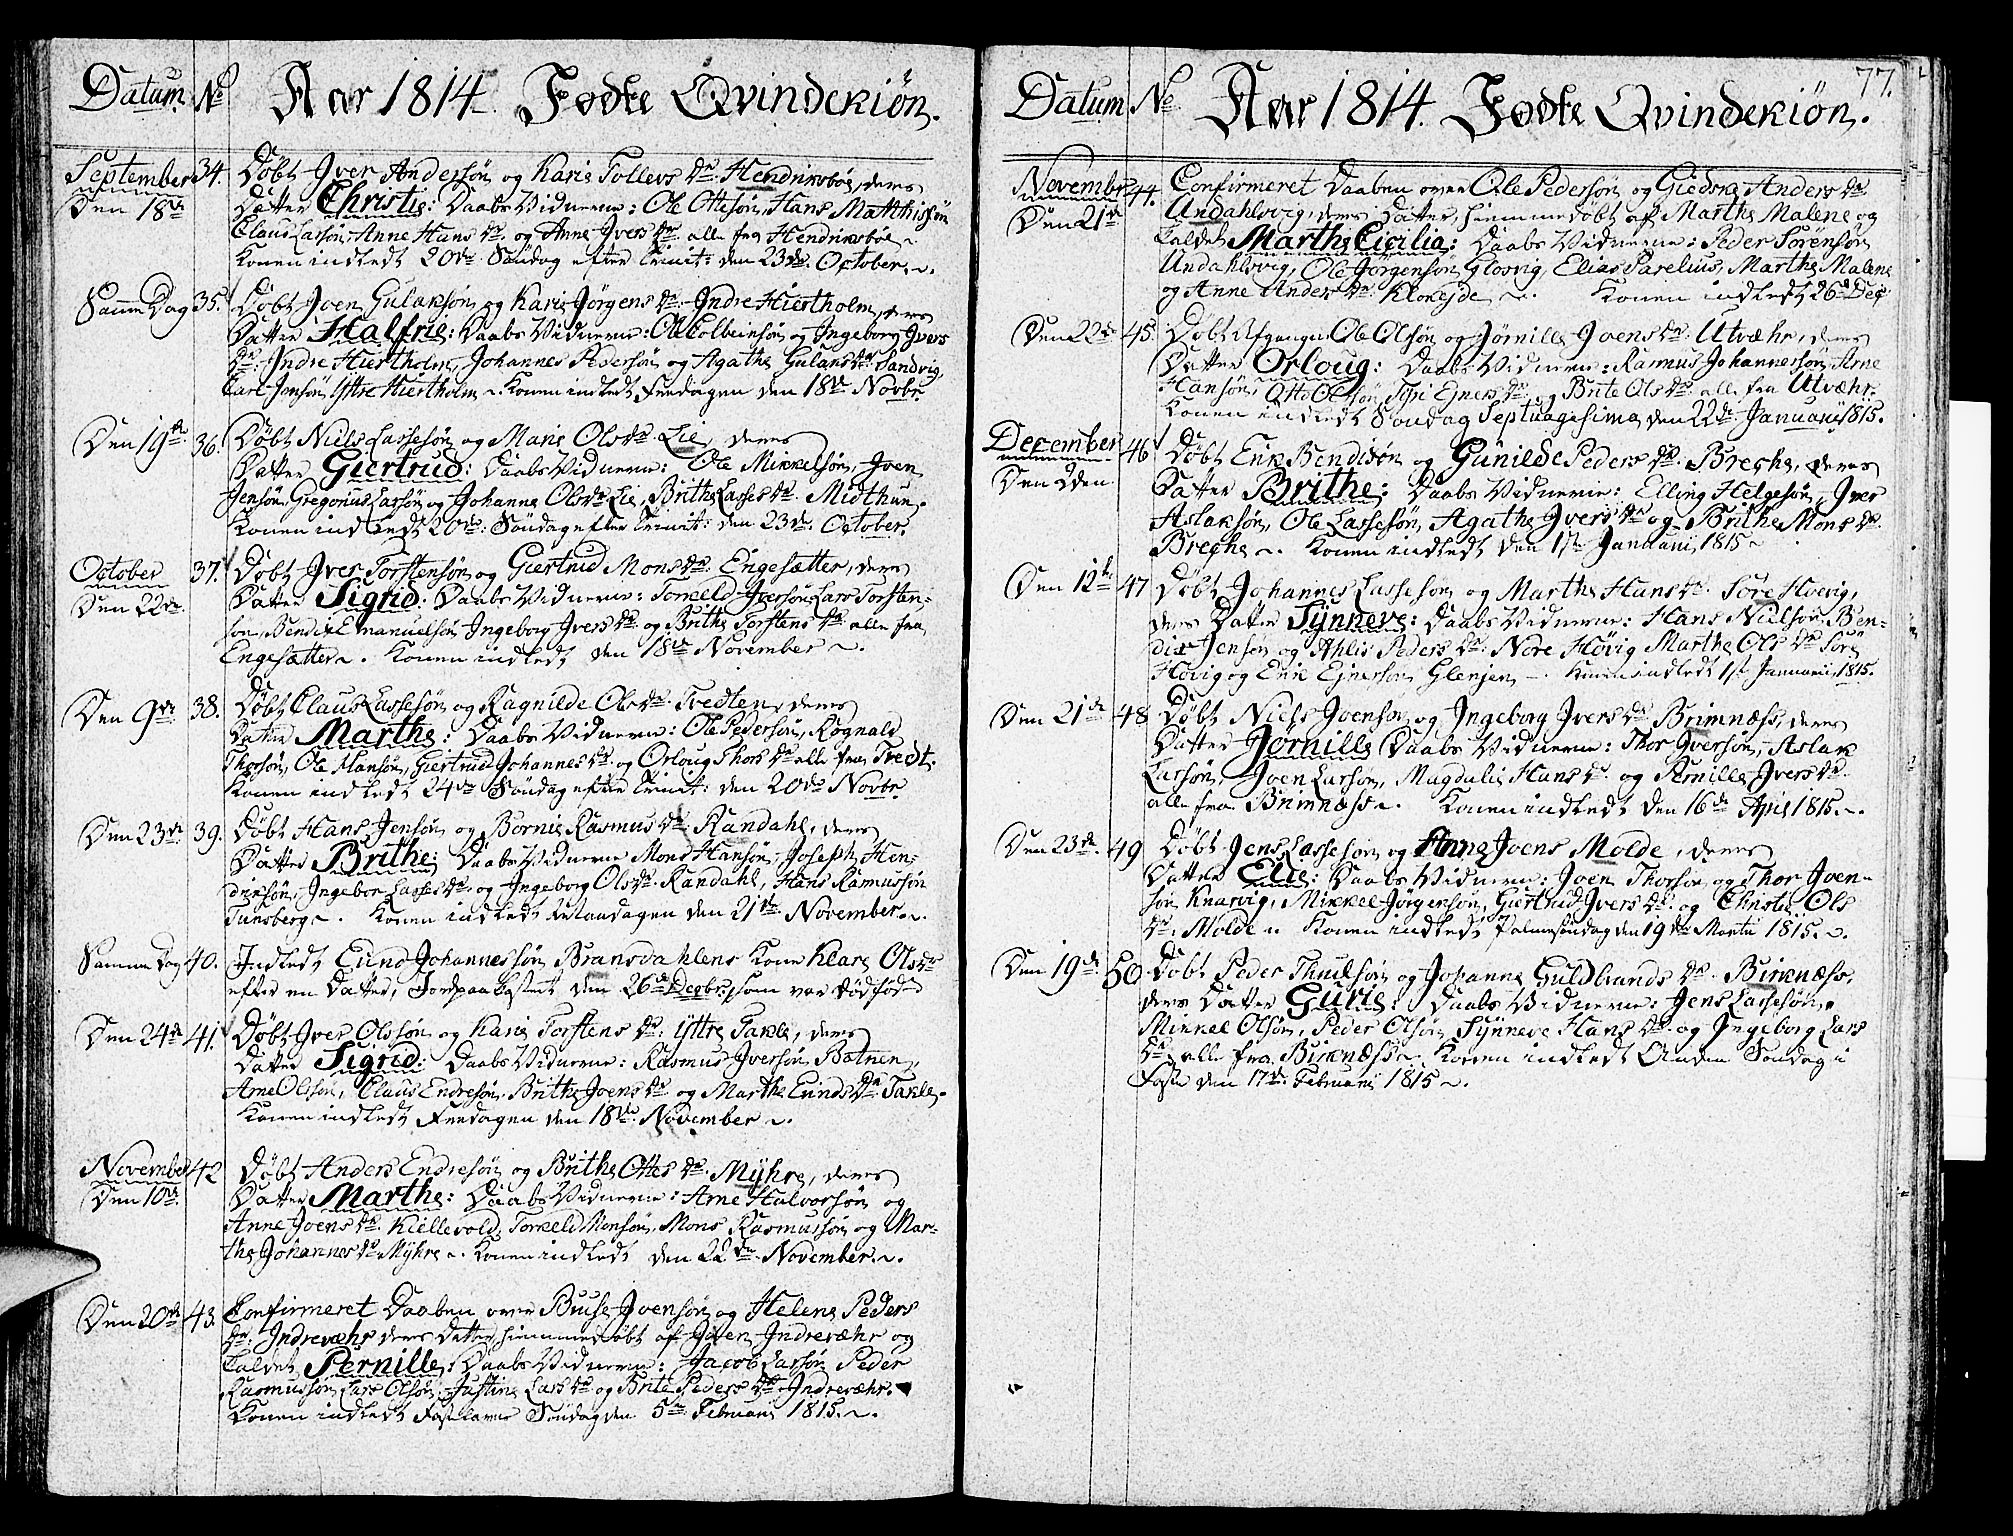 Datum No Aar 1814. Fødte Qvindekiøn.
September 34. Døbt Iver Andersøn og Karis Tollevs Dr. Hendriksbøe, deres
Den 18de Datter Christie: Daabs Vidnerne: Ole Ottesøn, Hans Matthissøn
Claus Larsøn, Anne Hans Dr. og Anne Ivers Dr. alle fra Hendriksbøe.
Konen indledt 20de Søndag efter Trinit: den 23de October.
Samme Dag 35. Døbt Joen Gulaksøn og Karis Jørgens Dr. Indre Hiertholm, deres
Datter Halfrie: Daabs Vidnerne: Ole Colbeinsøn og Ingeborg Ivers
Dr. Indre Hiertholm, Johannes Pedersøn og Agathe Gulaks Dr. Sandvig,
Carl Jensøn Ittre Hiertholm. Konen indledt Fredagen den 18de Novbr.
Den 19de 36. Døbt Niels Lassesøn og Maris Ols Dr. Lie, deres
Datter Giertrud: Daabs Vidnerne: Ole Mikkelsøn, Joen
Jensøn, Gregorius Larsøn og Johanne Ols Dr. Lie, Brithe Lasses Dr. Midthun.
Konen indledt 20de Søndag efter Trinit: den 23de October.
October 37. Døbt Iver Torstensøn og Giertrud Mons Dr. Engesætter, deres
Den 22de Datter Sigrid: Daabs Vidnerne: Torkeld Iversøn, Lars Torsten-
søn, Bendix Emanuelsøn, Ingeborg Ivers Dr. og Brithe Torstens Dr. alle fra
Engesætter. Konen indledt den 18de November.
Den 9de 38. Døbt Claus Lassesøn og Ragnilde Ols Dr. Tredten, deres
Datter Marthe: Daabs Vidnerne: Ole Pedersøn, Rognald
Thorsøn, Ole Hansøn, Giertrud Johannes Dr. og Orloug Thors Dr. alle fra Tredt.
Konen indledt 24de Søndag efter Trinit: den 20de Novbr.
Den 23de 39. Døbt Hans Jensøn og Bornis Rasmus Dr. Randahl, deres
Datter Brithe: Daabs Vidnerne Mons Hansøn, Joseph Hen-
dricsøn, Ingebor Lasses Dr. og Ingeborg Ols Dr. Randahl, Hans Rasmussøn
Tunsberg. Konen indledt den 21de November.
Samme Dag 40. Indledt Eiind Johannessøn Bransdahlens Kone Klare Ols Dr.
efter en Datter, Jordpaakastet den 26de Decbr, som var dødfød
Den 24de 41. Døbt Iver Olssøn og Karis Torstens Dr. Ittre Takle, deres
Datter Sigrid: Daabs Vidnerne: Rasmus Iversøn Botnen,
Arne Olssøn, Claus Endresøn, Brithe Joens Dr. og Marthe Eiinds Dr. Takle.
Konen indledt Fredagen den 18de November.
November 42 Døbt Anders Endresøn og Brithe Ottes Dr. Myhre, deres
Den 10de Datter Marthe: Daabs Vidnerne: Arne Halvorsøn og
Anne Joens Dr. Kiellevold, Torkeld Monsøn, Mons Rasmussøn og Mar-
the Johannes Dr. Myhre. Konen indledt den 22de November.
Den 20de 43. Confirmeret Daaben over Buise Joensøn og Helene Peders
Dr. Indrevæhr deres Datter, hiemmedøbt af Joen Indrevæhr og
kaldet Pernille: Daabs Vidnerne: Jacob Larsøn, Peder
Rasmussøn, Lars Olsøn, Justine Lars Dr. og Brite Peders Dr. Indrevæhr.
Konen indledt Fastelavns Søndag den 5te Februarii 1815.
77.
Datum No. Aar 1814. Fødte Qvindekiøn.
November 44. Confirmeret Daaben over Ole Pedersøn og Giedske Anders Dr.
Den 21de Undahlsvig, deres Datter, hiemmedøbt af Marthe Malene og
kaldet Marthe Cicilia: Daabs Vidnerne: Peder Sørensøn
Undahlsvig, Ole Jørgensøn Glosvig, Elias Parelius, Marthe Malene
og Anne Anders Dr. Kloksyde. Konen indledt 26de Dec.
Den 22de 45. Døbt Ole Olsøn og Jørnille Joens Dr. Utvæhr, deres
Datter Orloug: Daabs Vidnerne: Rasmus Johannessøn, Arne
Hansøn, Otto Olsøn, Ejners Dr. og Brite Ols Dr. alle fra Utvæhr.
Konen indledt Søndag Septuagesima den 22de Januarii 1815.
December 46 Døbt Erik Bendixøn og Gunilde Peders Dr. Breche, deres
Den 2den Datter Brithe: Daabs Vidnerne: Elling Helgesøn, Iver
Aslaksøn, Ole Lassesøn, Agathe Ivers Dr. og Brithe Mons Dr.
Breche. Konen indledt den 1ste Januarii 1815
Den 12te 47 Døbt Johannes Lassesøn og Marthe Hans Dr. Søre Høvig,
deres Datter Synneve: Daabs Vidnerne: Hans Nielsøn, Ben-
dix Jensøn og Ahlis Peders Dr. Nore Høvig Marthe Ols Dr. Søre
Høvig og Erik Ejnersøn Glenjen. Konen indledt 1ste Januarii 1815.
Den 21de 48 Døbt Niels Joensøn og Ingeborg Ivers Dr. Brimnæss, deres
Datter Jørnille Daabs Vidnerne: Thor Iversøn, Aslak
Larsøn, Joen Larsøn, Magdalis Hans Dr. og Pernille Ivers Dr.
alle fra Brimnæss. Konen indledt den 16de April 1815.
Den 23de 49 Døbt Jens Lassesøn og Anne Joens Molde, deres
Datter Elie: Daabs Vidnerne: Joen Thorsøn og Thor Joen-
søn Knarvig, Mikkel Jørgensøn, Giertrud Ivers Dr. og Christie Ols
Dr. Molde. Konen indledt Palmesøndag den 19de Martii 1815.
Den 19de 50 Døbt Peder Thuulsøn og Johanne Guldbrands Dr. Birknæss,
deres Datter Gurie: Daabs Vidnerne: Jens Lassesøn,
Mikkel Olsøn, Peder Olsøn, Synneve Hans Dr. og Ingeborg Lars
Dr. alle fra Birknæss. Konen indledt Anden Søndag i
Faste den 17de Februarii 1815.